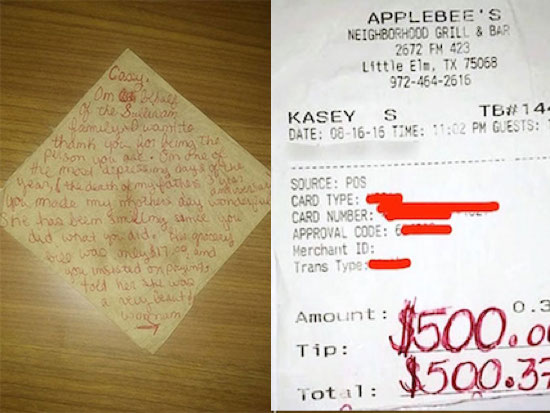 Casey,
On behalf
of the Sullivan
family I want to
thank you for being the
person you are. On one of
the most depressing days of the
year, (the death of my fathers anniversary)
you made my mothers day wonderful.
She has been smiling since you
did what you did. Her grocery
bill was only $17.00, and
you insisted on paying.
told her she was
a very beautiful
woman.
APPLEBEE'S
NEIGHBORHOOD GRILL & BAR
2672 FM 423
Little Elm, TX 75068
972-464-2616
KASEY S TB#14
DATE: 08-16-16 TIME: 11:02 PM GUESTS:
SOURCE: POS
CARD TYPE:
CARD NUMBER:
APPROVAL CODE: 6
Merchant ID:
Trans Type:
Amount: 0.3
Tip: $500.00
Total: $500.37